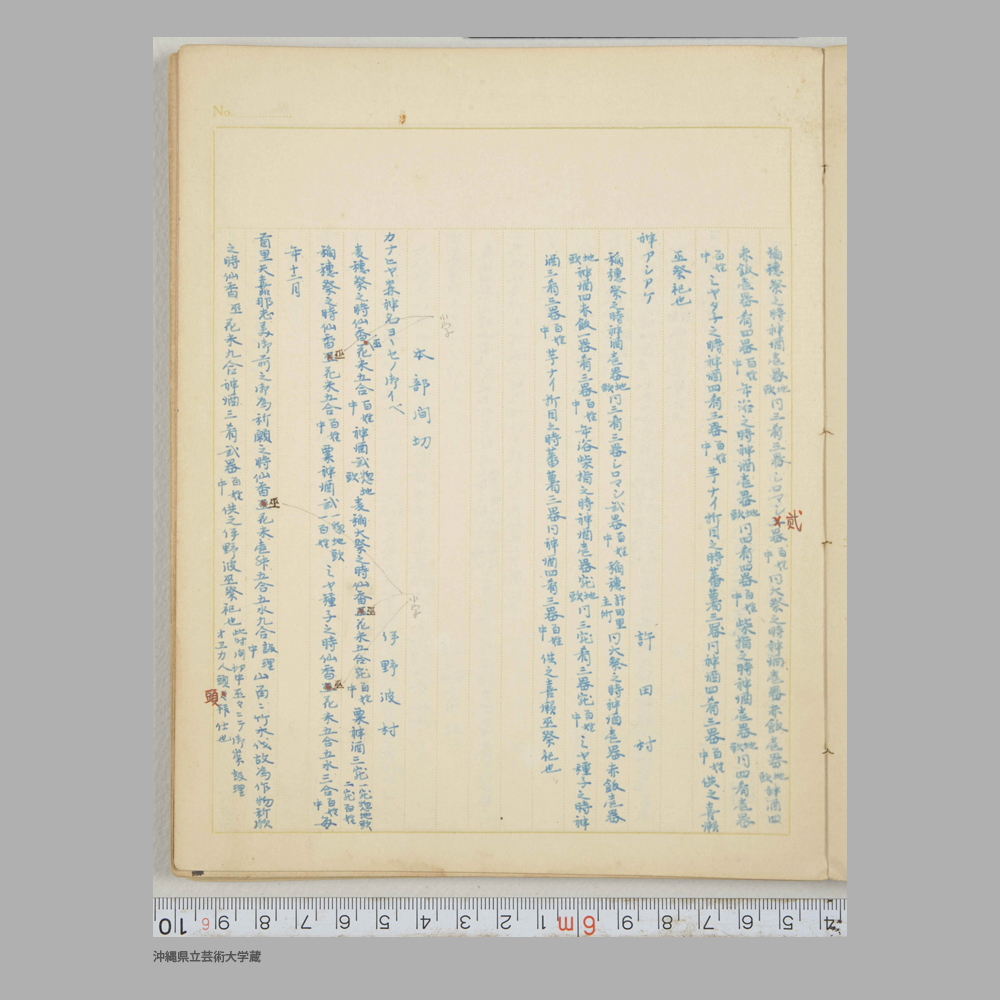 稲穂祭之時神酒壱器地頭同三肴三器シロマシ弐器百姓中同大祭之時神酒壱器赤飯壱器地頭神酒四
赤飯壱器肴四器百姓中年浴之時神酒壱器地頭同四肴四器百姓中柴指之時神酒壱器地頭同四肴壱器
百姓中ミヤタ子之時神酒四肴三器百姓中芋ナイ折目之時蕃薯三器同神酒四肴三器百姓中供之喜瀬
巫祭祀也
神アシアゲ 許田村
稲穂祭之時神酒壱器地頭同三肴三器シロマシ弐器百姓中稲穂許田里主所同大祭之時神酒壱器赤飯壱器
地頭神酒四赤飯一器肴三器百姓中年浴柴指之時神酒壱器完地頭同三完肴三器完百姓中ミヤ種子之時神
酒三肴三器百姓中芋ナイ折目之時蕃薯三器同神酒四肴三器百姓中供之喜瀬巫祭祀也
本部間切
カナヒヤ森神名ヨーセノ御イベ 伊野波村
麦穂祭之時仙香巫花米五合百姓中神酒弐惣地頭麦稲大祭之時仙香巫花米五合完百姓中粟神酒三完一完惣地頭二完百姓
稲穂祭之時仙香巫花米五合百姓中粟神酒弐一惣地頭一百姓ミヤ種子之時仙香巫花米五合五水三合百姓中毎
年十二月
首里天嘉那志美御前之御為祈願之時仙香巫花米壱升五合五水九合中山留二竹木伐故為作物祈願
之時仙香巫花米九合神酒三肴弐器百姓中供之伊野波巫祭祀也
小字
小字
弐
頭
No.
10 9 8 7 6 5 4 3 2 1 6m 9 8 7 6 5 4
沖縄県立芸術大学蔵